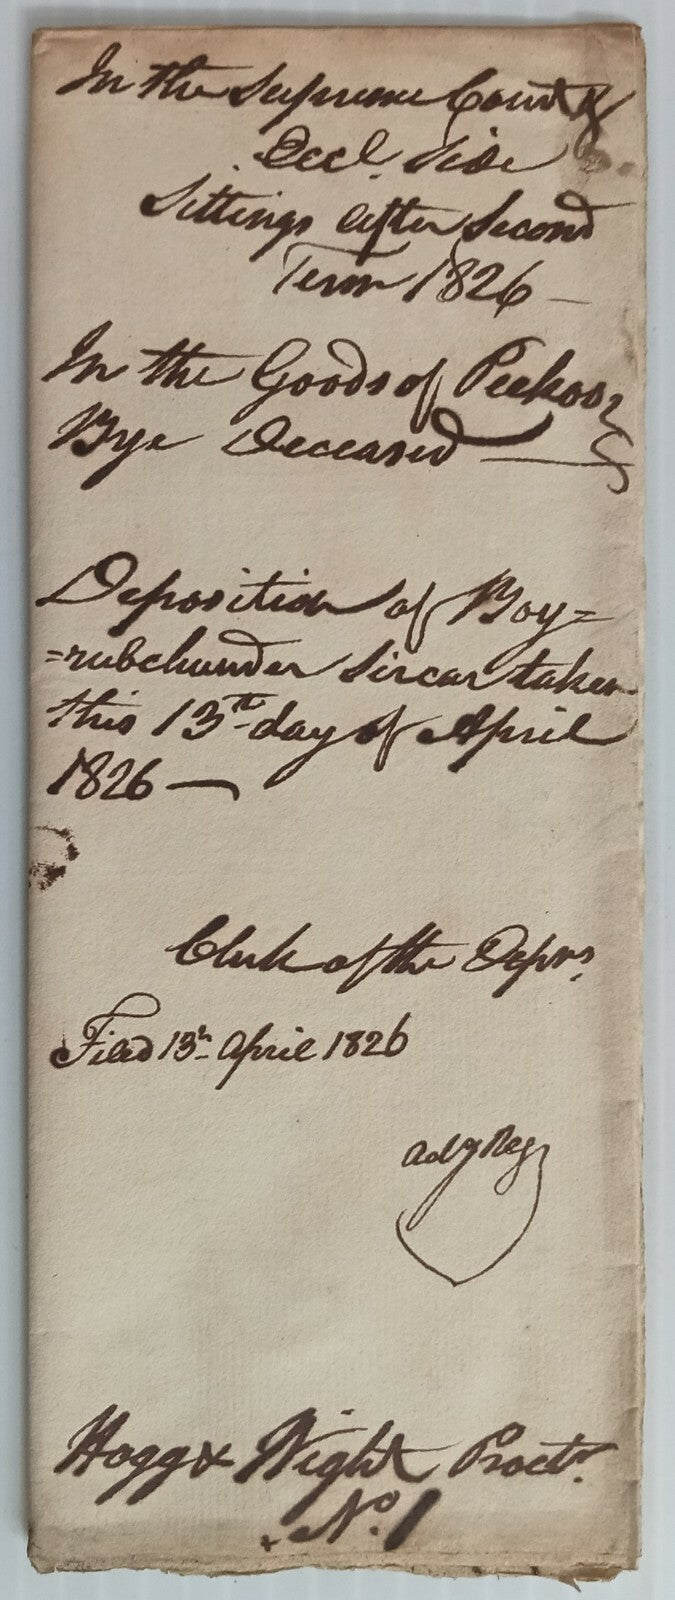 In the Supreme Court
Eccl. Side
Sittings after Second
Term 1826 —
In the Goods of Peekoo
Bye Deceased —
Deposition of Boy=
=rubchunder Sircar taken
this 13th day of April
1826 —
Clerk of the Depns.
Filed 13th April 1826
Hogg & Wight Proctr.
No. 1